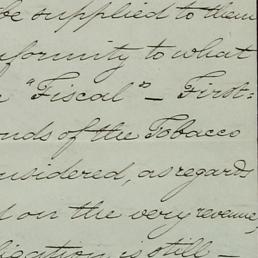 be supplied to them
nformity to what
"Fiscal" – First=
nds of the Tobacco
nsidered, as regards
on the very revenue,
ligation is still –